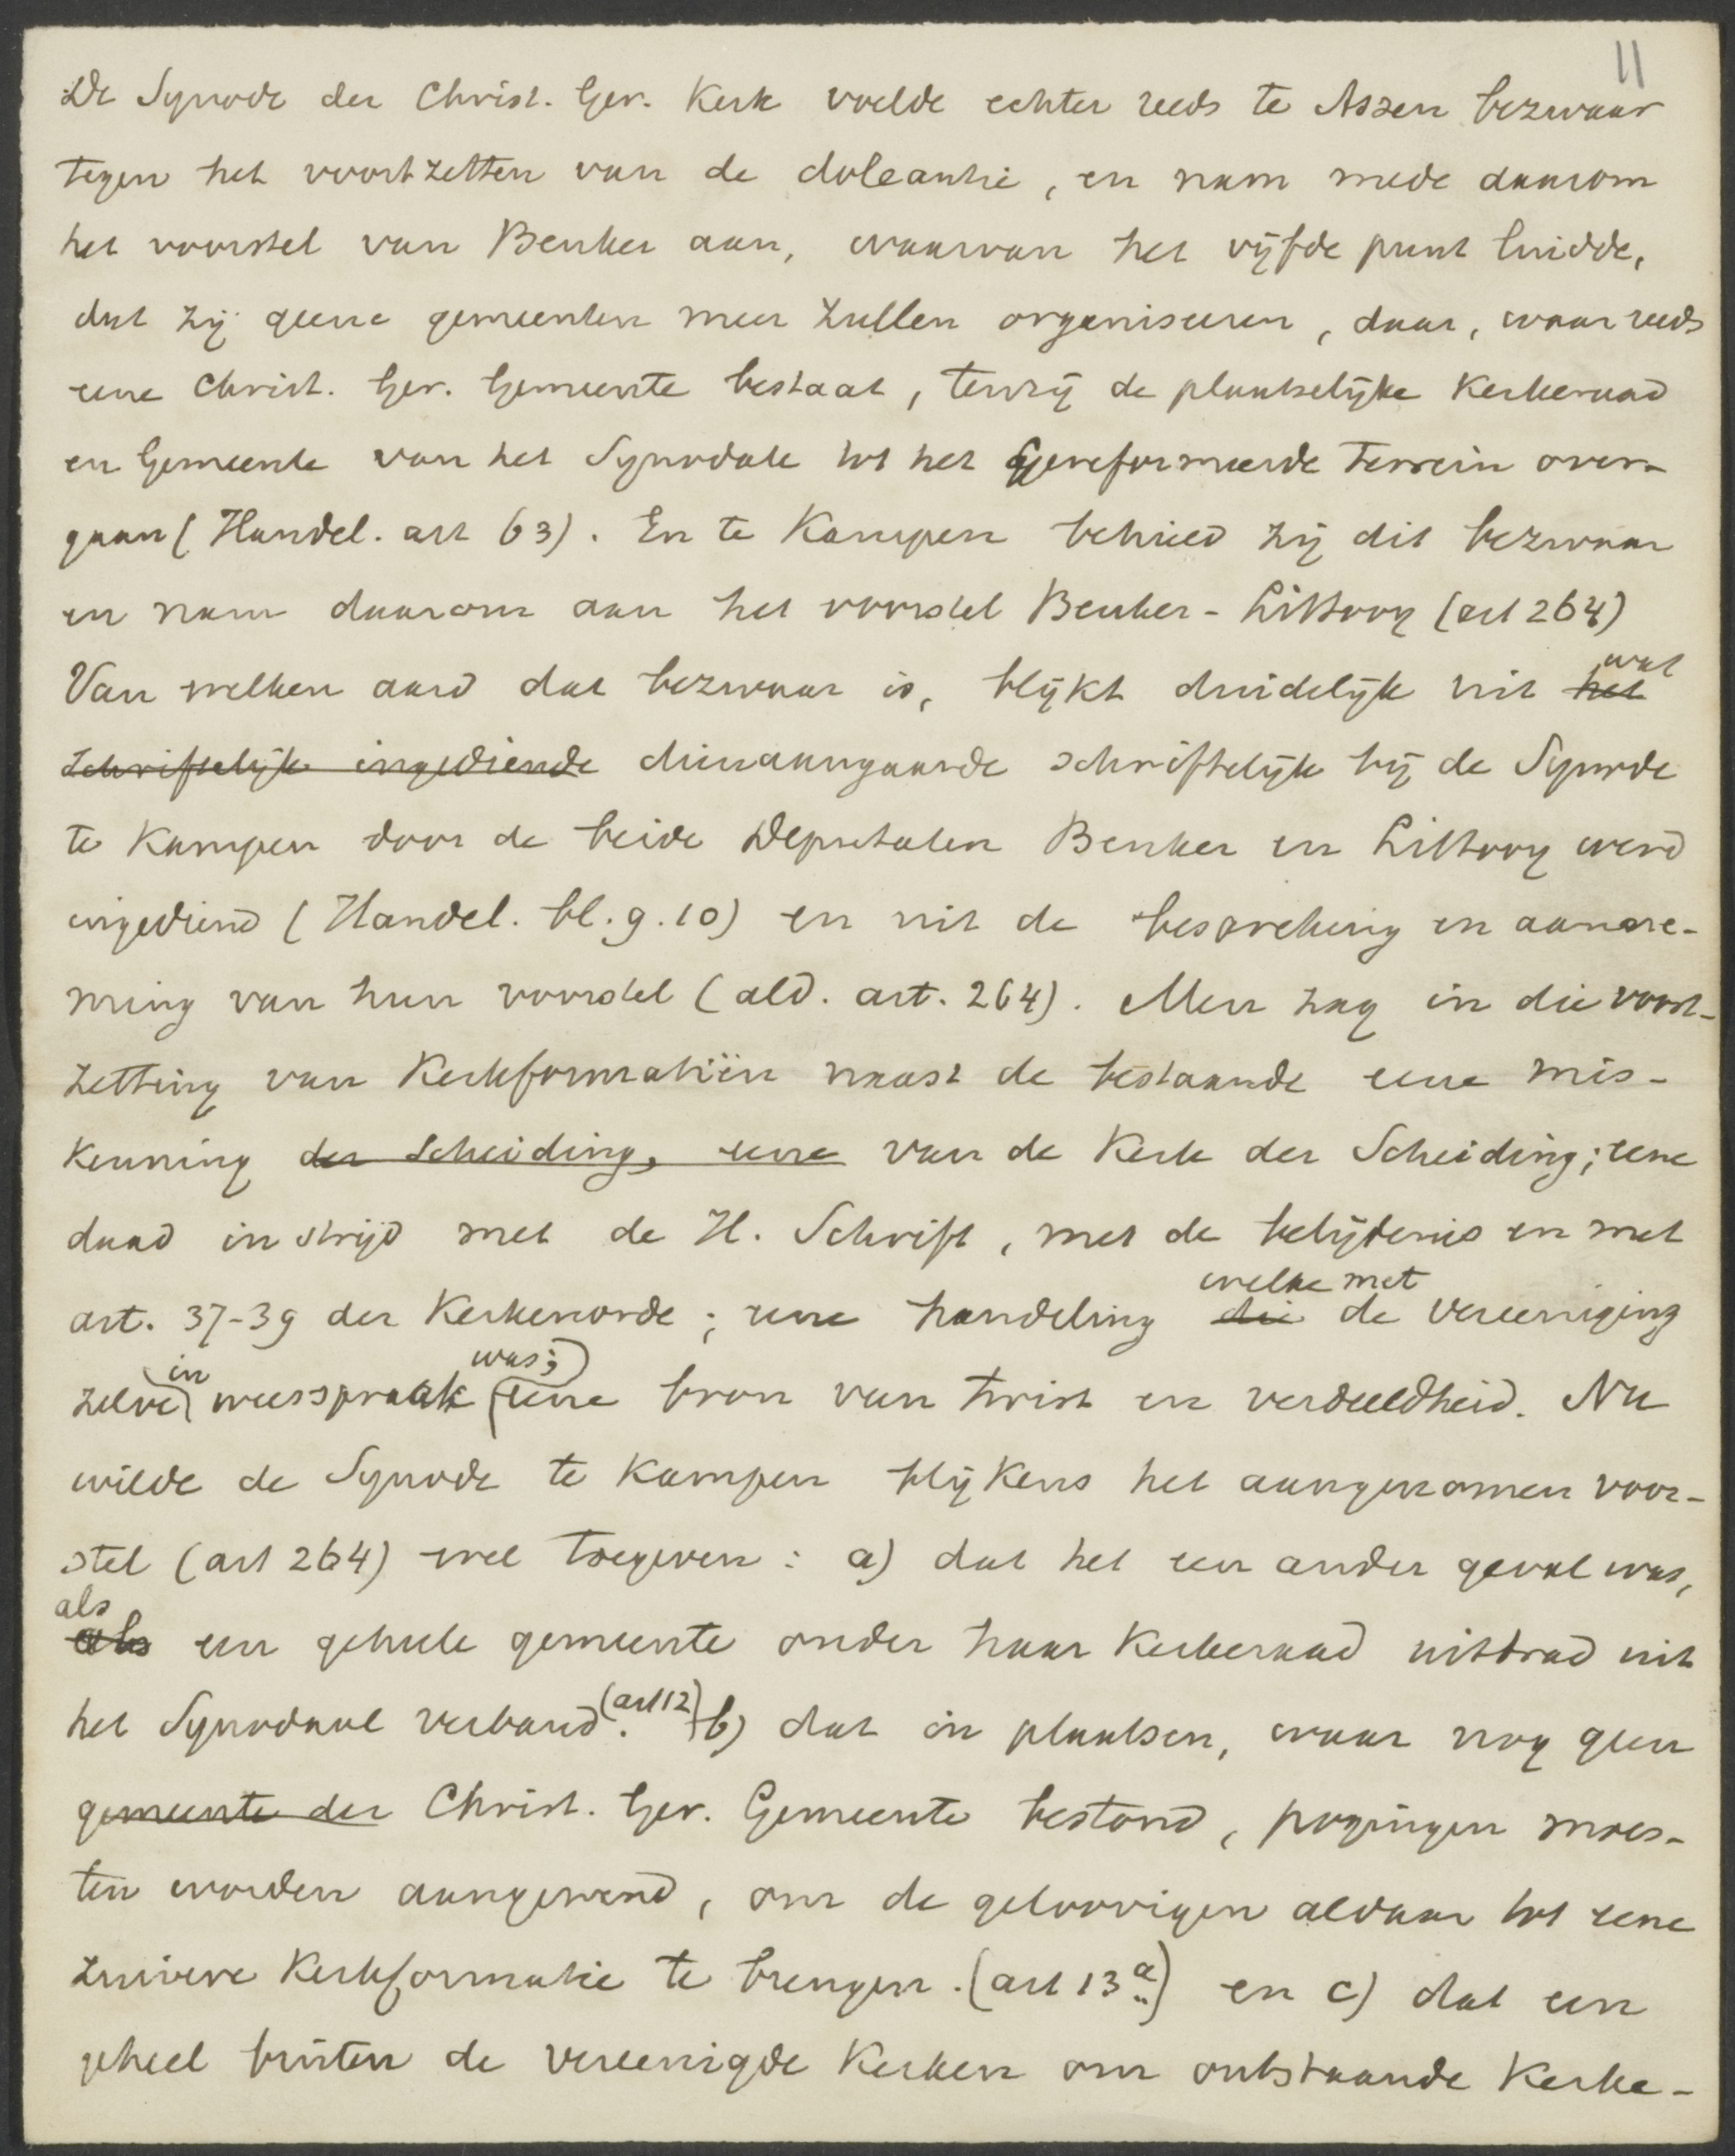 11
De Synode der Christ. Ger. Kerk voelde echter reeds te Assen bezwaar
tegen het voortzetten van de doleantie, en nam mede daarom
het voorstel van Beuker aan, waarvan het vijfde punt luidde,
dat zij geene gemeenten meer zullen organiseeren, daar, waar reeds
eene Christ. Ger. Gemeente bestaat, tenzij de plaatselijke Kerkeraad
en Gemeente van het Synodale tot het Gereformeerde terrein over-
gaan (Handel. art 63). En te Kampen behield zij dit bezwaar
en nam daarom aan het voorstel Beuker-Littooy (art 264)
Van welken aard dat bezwaar is, blijkt duidelijk uit ~~het~~ wat
~~schriftelijk ingediende~~ dienaangaande schriftelijk bij de Synode
te Kampen door de beide Deputaten Beuker en Littooy werd
ingediend (Handel. bl. 9.10) en uit de bespreking en aanne-
ming van hun voorstel (ald. art. 264). Men zag in die voort-
zetting van Kerkformatiën naast de bestaande eene mis-
kenning ~~der Scheiding, eene~~ van de Kerk der Scheiding; eene
daad in strijd met de H. Schrift, met de belijdenis en met
art. 37-39 der Kerkenorde; eene handeling ~~die~~ welke met de Vereeniging
zelve in weerspraak was; eene bron van twist en verdeeldheid. Nu
wilde de Synode te Kampen blijkens het aangenomen voor-
stel (art 264) wel toegeven: a) dat het een ander geval was,
~~als~~ als een geheele gemeente onder haar Kerkeraad uittrad uit
het Synodaal verband. (art 12) b) dat in plaatsen, waar nog geen
~~gemeente der~~ Christ. Ger. Gemeente bestond, pogingen moes-
ten worden aangewend, om de geloovigen aldaar tot eene
zuivere Kerkformatie te brengen. (art 13 a) en c) dat een
geheel buiten de vereenigde Kerken om ontstaande Kerke-